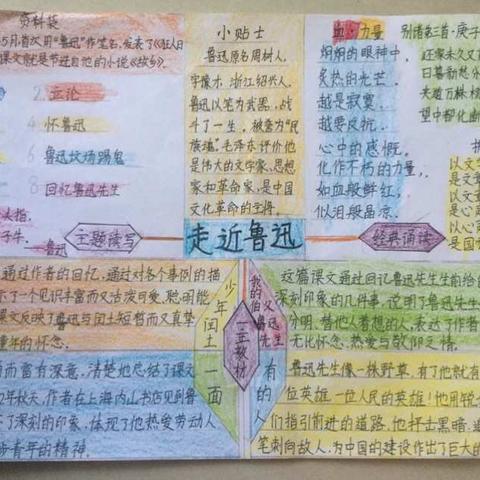 资料袋
5月首次用“鲁迅”作笔名,发表了《狂人日
课文就是节选自他的小说《故乡》。
2. 立论
4 怀鲁迅
6 鲁迅坟场踢鬼
8 回忆鲁迅先生
夫指,
子牛。
——鲁迅
主题读写
小贴士
鲁迅原名周树人,
字豫才,浙江绍兴人,
鲁迅以笔为武器,战
斗了一生,被誉为“民
族魂”。毛泽东评价他
是伟大的文学家,思想
家和革命家,是中国
文化革命的主将。
走近鲁迅
血·力量
炯炯的眼神中,
炙热的光芒,
越是寂寞,
越要反抗。
心中的感慨,
化作不朽的力量,
如血般鲜红,
似泪般晶凉。
别诸弟三首·庚子
还家未久又
日暮新愁
夹道万株
望中都化断
以文
是文
以文
是心
以心
是国
经典诵读
通过作者的回忆,通过对各个事例的描
示了一个见识丰富而又活泼可爱、聪明能
课文反映了鲁迅与闰土短暂而又真挚
童年的怀念。
少年闰土
我的伯父鲁迅先生
一立教材
一面
有的人
这篇课文通过回忆鲁迅先生生前给
深刻印象的几件事,说明了鲁迅先生
分明、替他人着想的人,表达了作者
无比怀念、热爱与敬仰之情。
而富有深意,清楚地总结了课文
年秋天,作者在上海内山书店见到鲁
下了深刻的印象,体现了他热爱劳动人
步青年的精神。
鲁迅先生像一株野草,有了他就有
位英雄一位人民的英雄!他用锐
们指引前进的道路,他抨击黑暗,追
笔刺向敌人,为中国的建设作出了巨大的